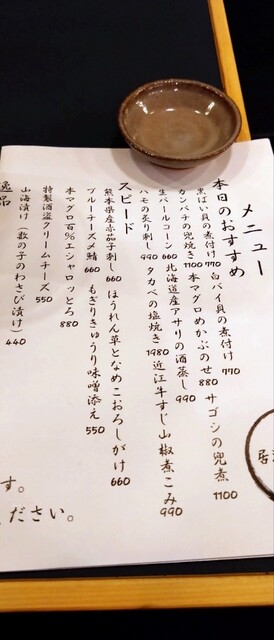 メニュー
本日のおすすめ
黒ばい貝の煮付け 770 白バイ貝の煮付け 770
カンパチの兜焼き 1100 本マグロめかぶのせ 880 サゴシの兜煮 1100
生パールコーン 660 北海道産アサリの酒蒸し 990
ハモの炙り刺し 990 タカベの塩焼き 1980 近江牛すじ山椒煮こみ 990
スピード
熊本県産赤茄子刺し 660 ほうれん草となめこおろしがけ 660
ブルーチーズメ鯖 660 もぎりきゅうり味噌添え 550
本マグロ百%エシャロッとろ 880
特製酒盗クリームチーズ 550
山海漬け(数の子のわさび漬け) 440
逸品
す。
ださい。
居